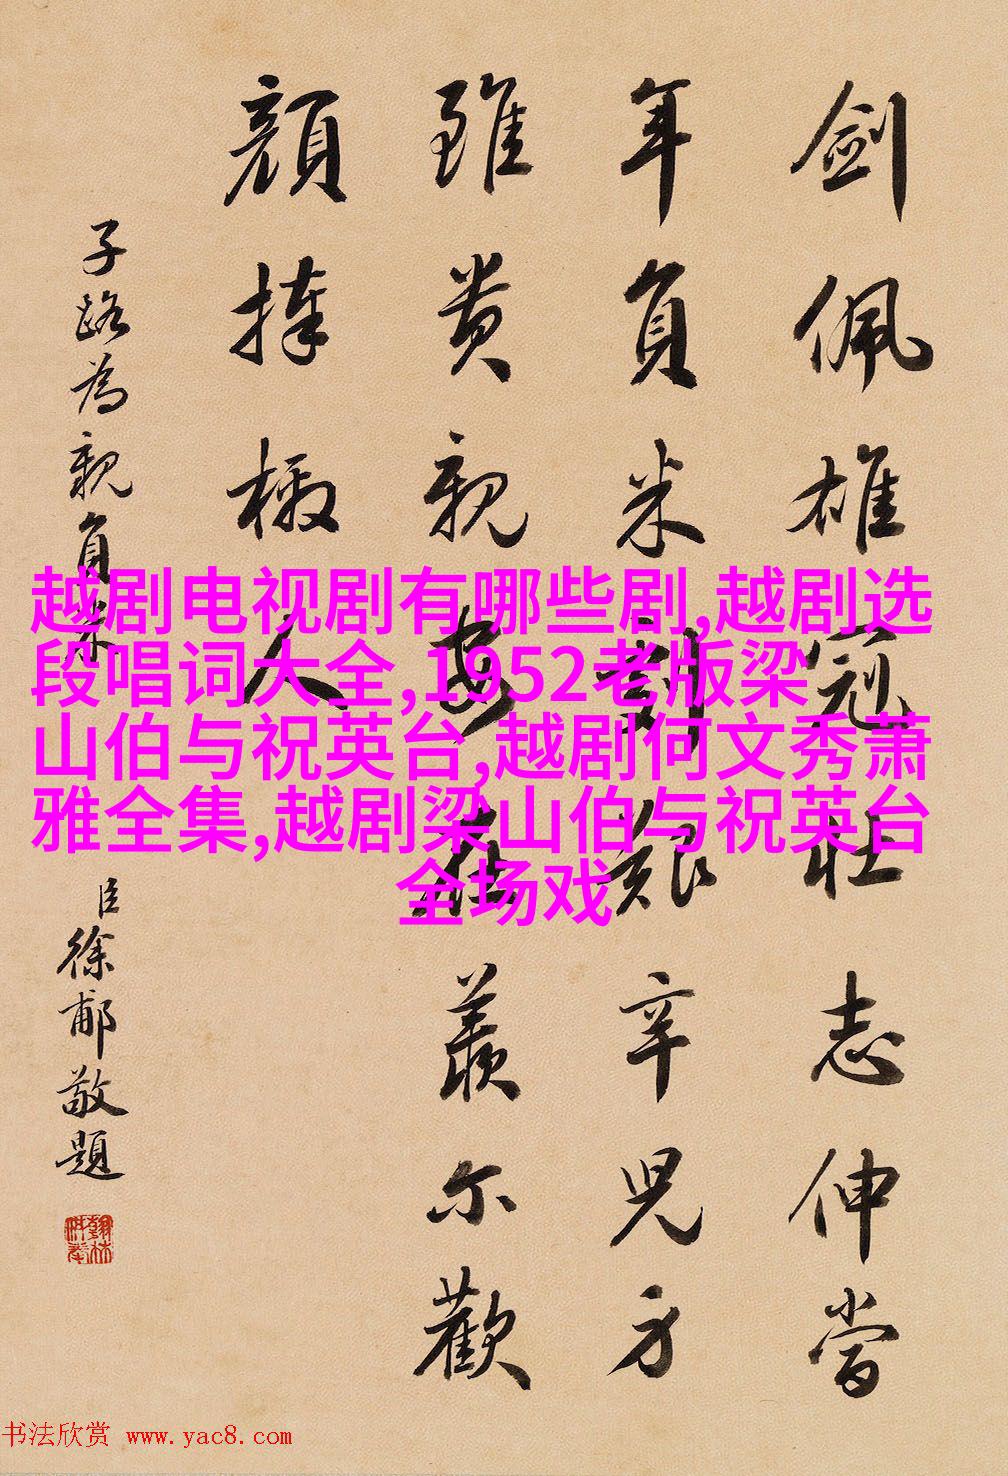 劍佩雄冠壯志伸當
年負米艱辛兒方
雖貴親安在羨尔歡
顏捧檄人
子路為親負米
臣徐郙敬題
越剧电视剧有哪些剧,越剧选
段唱词大全,1952老版梁
山伯与祝英台,越剧何文秀萧
雅全集,越剧梁山伯与祝英台
全场戏
书法欣赏 www.yac8.com